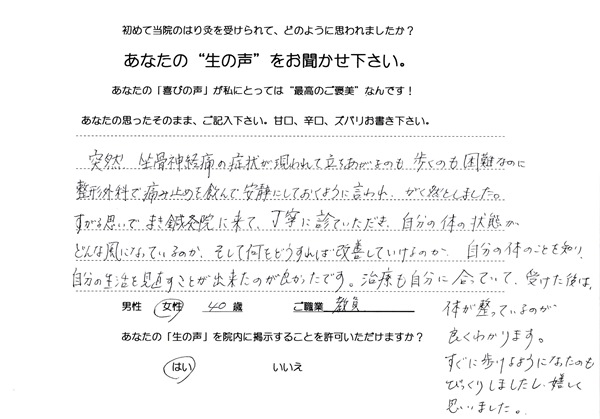 初めて当院のはり灸を受けられて、どのように思われましたか？
あなたの“生の声”をお聞かせ下さい。
あなたの「喜びの声」が私にとっては“最高のご褒美”なんです！
あなたの思ったそのまま、ご記入下さい。甘口、辛口、ズバリお書き下さい。
突然、坐骨神経痛の症状が現われて立ちあがるのも歩くのも困難なのに
整形外科で痛み止めを飲んで安静にしておくように言われ、がく然としました。
すがる思いで、まき鍼灸院に来て、丁寧に診ていただき、自分の体の状態が
どんな風になっているのか、そして何をどうすれば改善していけるのか、自分の体のことを知り、
自分の生活を見直すことが出来たのが良かったです。治療も自分に合っていて、受けた後は、
体が整っているのが
良くわかります。
すぐに歩けるようになったのも
びっくりしましたし、嬉しく
思いました。
男性 女性 40 歳 ご職業 教員
あなたの「生の声」を院内に掲示することを許可いただけますか？
はい いいえ